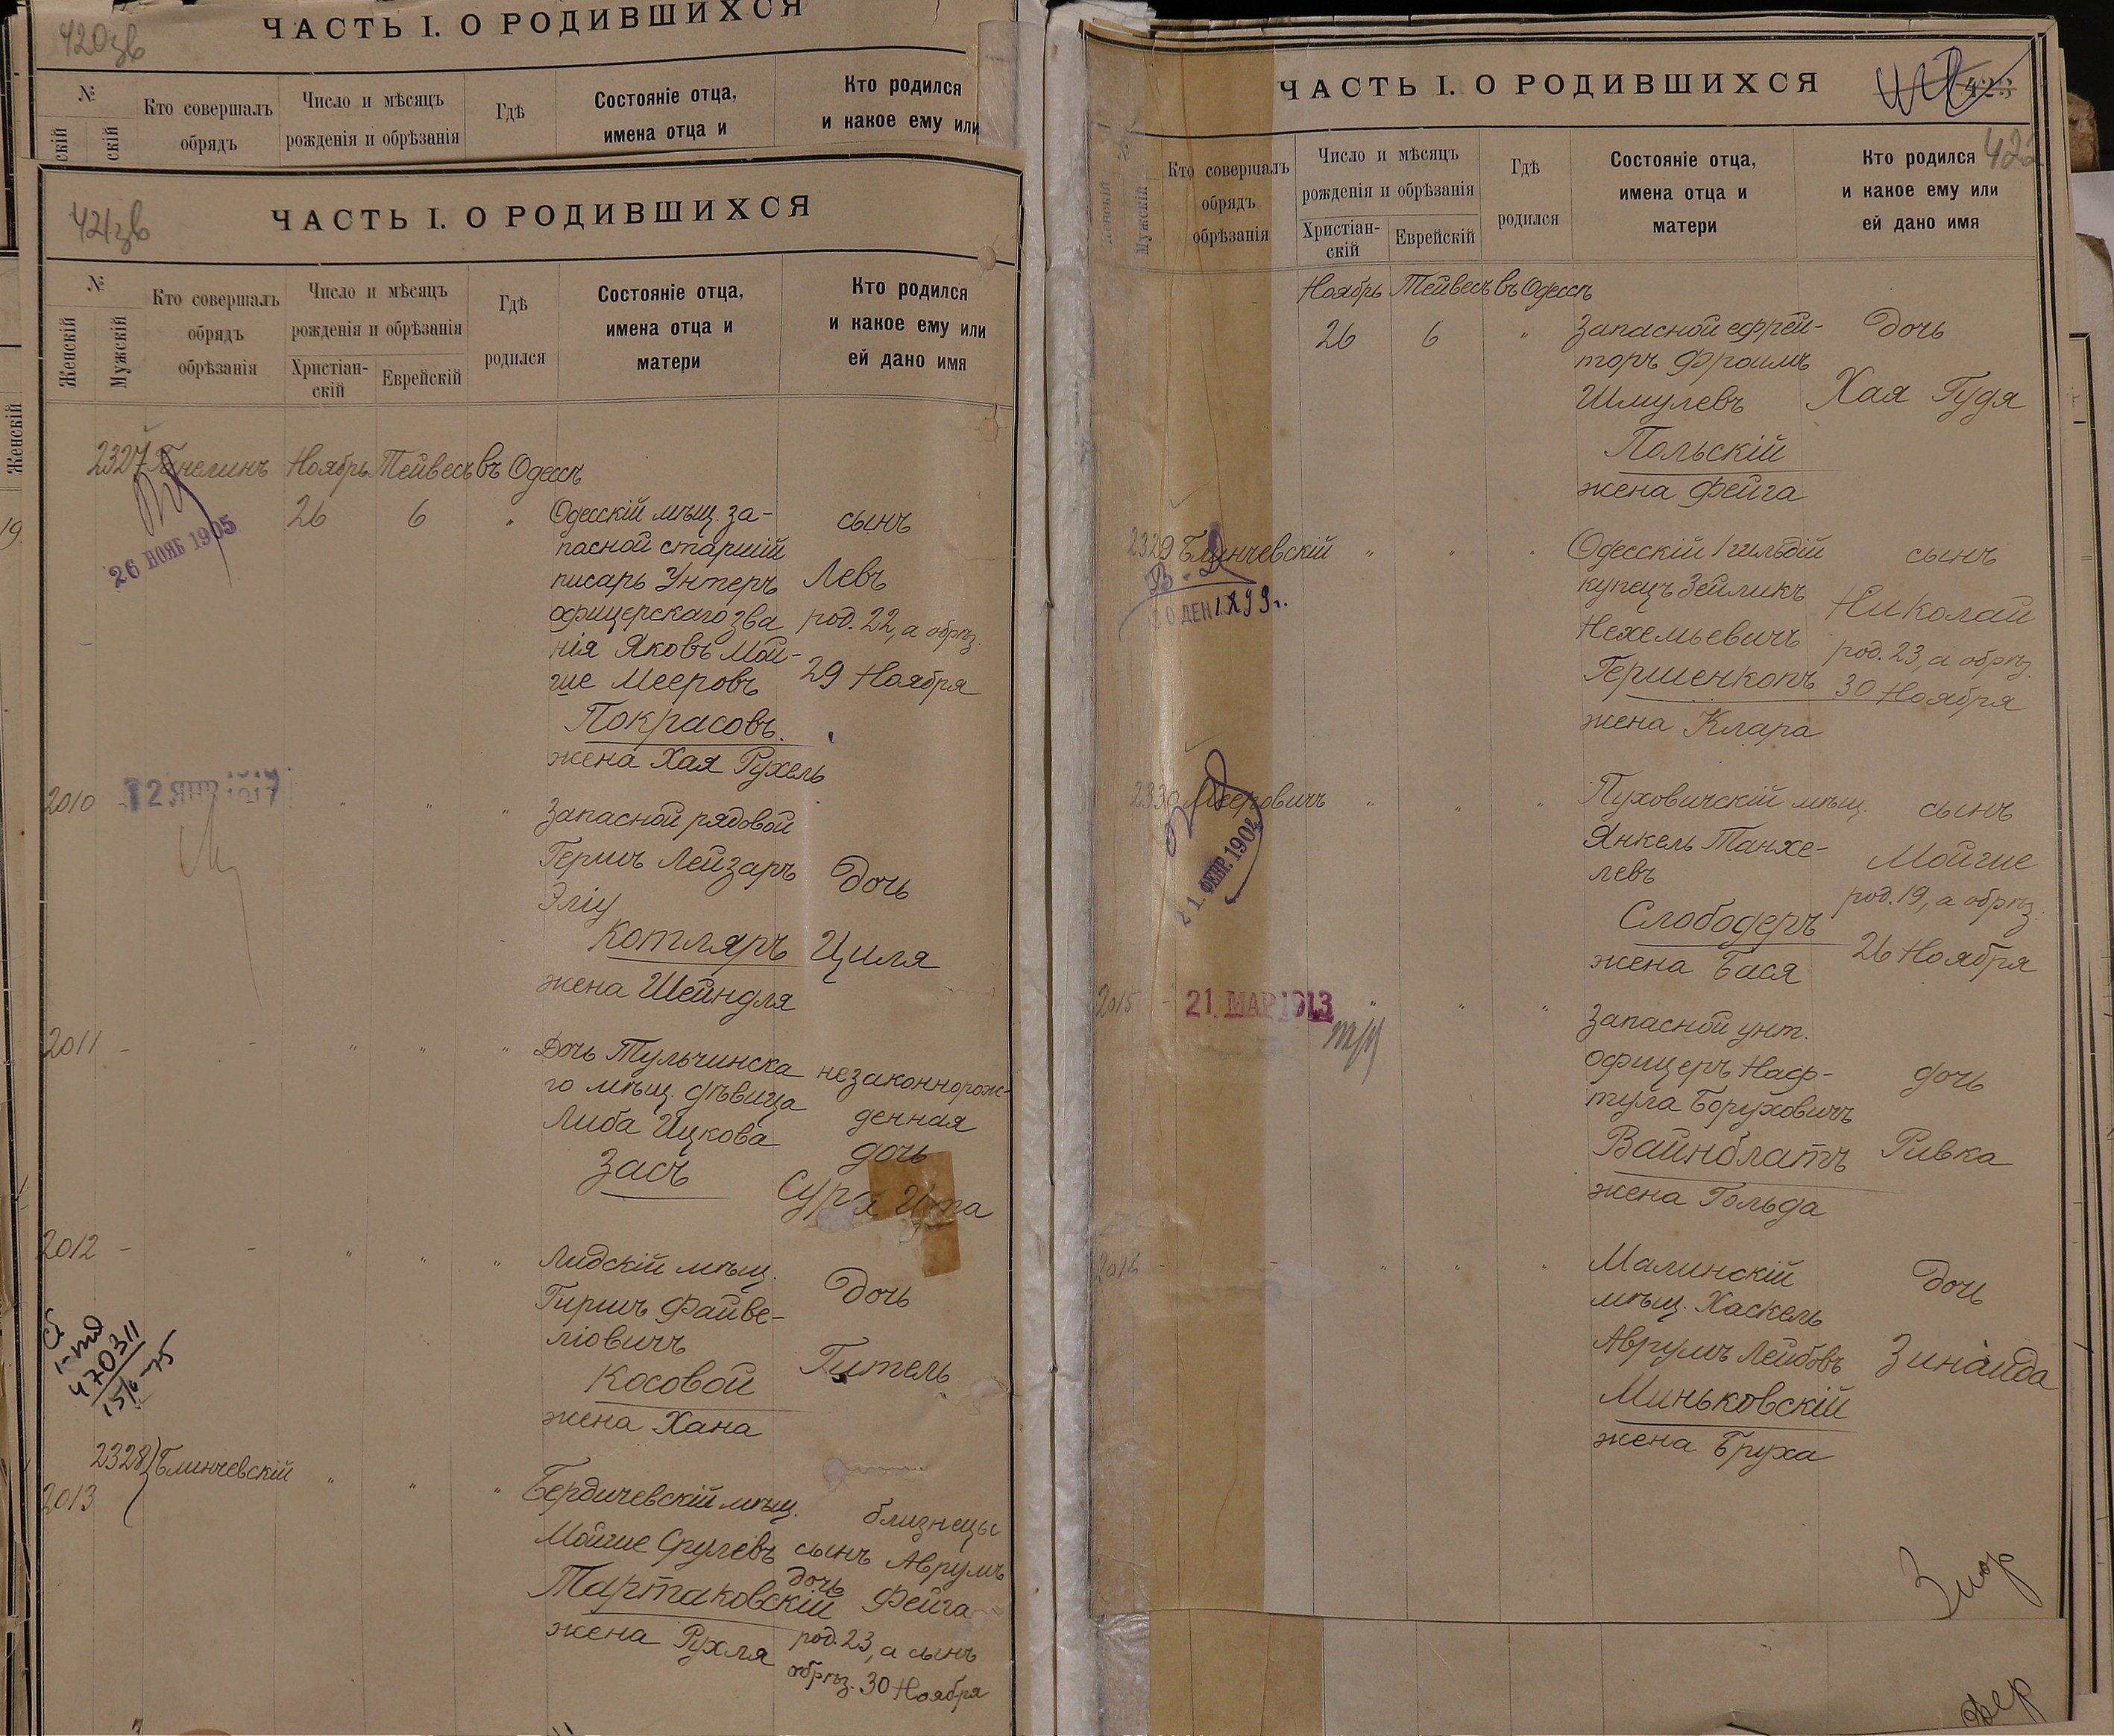 420зв
ЧАСТЬ I. О РОДИВШИХСЯ
№
скій
скій
Кто совершалъ
обрядъ
Число и мѣсяцъ
рожденія и обрѣзанія
Гдѣ
Состояніе отца,
имена отца и
Кто родился
и какое ему или
421зв
ЧАСТЬ I. О РОДИВШИХСЯ
№
Женскій
Мужскій
Кто совершалъ
обрядъ
обрѣзанія
Число и мѣсяцъ
рожденія и обрѣзанія
Христіан-
скій
Еврейскій
Гдѣ
родился
Состояніе отца,
имена отца и
матери
Кто родился
и какое ему или
ей дано имя
2327 Ноябрь Тейвесъ въ Одессѣ
26 6 "
26 НОЯБ 1905
Одесскій мѣщ. за-
пасной старшій
писарь Унтеръ
офицерскаго зва
нія Яковъ Мой-
ше Мееровъ
Покрасовъ.
жена Хая Рухель
сынъ
Левъ
род. 22, а обрѣз.
29 Ноября
2010 12 ЯНВ 1917 " " "
Запасной рядовой
Гершъ Лейзаръ
Эліу
Котляръ
жена Шейндля
Дочь
Циля
2011 - - " " "
Дочь Тульчинска
го мѣщ. дѣвица
Либа Ицкова
Засъ
незаконнорож-
денная
дочь
Сура Ита
2012 - - " " "
Лидскій мѣщ.
Гиршъ Файве-
ліовичъ
Косовой
жена Хана
Дочь
Гитель
47031
15/6-75
2328 Блинчевскій " " "
2013
Бердичевскій мѣщ.
Мойше Срулевъ
Тартаковскій
жена Рухля
близнецы
сынъ Аврумъ
дочь
Фейга
род. 23, а сынъ
обрѣз. 30 Ноября
ЧАСТЬ I. О РОДИВШИХСЯ
423
422
Женскій
Мужскій
Кто совершалъ
обрядъ
обрѣзанія
Число и мѣсяцъ
рожденія и обрѣзанія
Христіан-
скій
Еврейскій
Гдѣ
родился
Состояніе отца,
имена отца и
матери
Кто родился
и какое ему или
ей дано имя
Ноябрь Тейвесъ въ Одессѣ
26 6 "
Запасной ефрей-
торъ Фроимъ
Шмулевъ
Польскій
жена Фейга
Дочь
Хая Гудя
2329 Блинчевскій " " "
Одесскій 1 гильдій
купецъ Зейликъ
Нехемьевичъ
Гершенкопъ
жена Клара
сынъ
Николай
род. 23, а обрѣз.
30 Ноября
2330 Мееровичъ " " "
21. ФЕВР. 1902
Пуховичскій мѣщ.
Янкель Танхе-
левъ
Слободеръ
жена Бася
сынъ
Мойше
род. 19, а обрѣз.
26 Ноября
2015 - 21 МАР 1913 " " "
Запасной унт.
офицеръ Наф-
тула Боруховичъ
Вайнблатъ
жена Гольда
дочь
Ривка
2016 - - " " "
Малинскій
мѣщ. Хаскель
Аврумъ Лейбовъ
Миньковскій
жена Бруха
Дочь
Зинаида